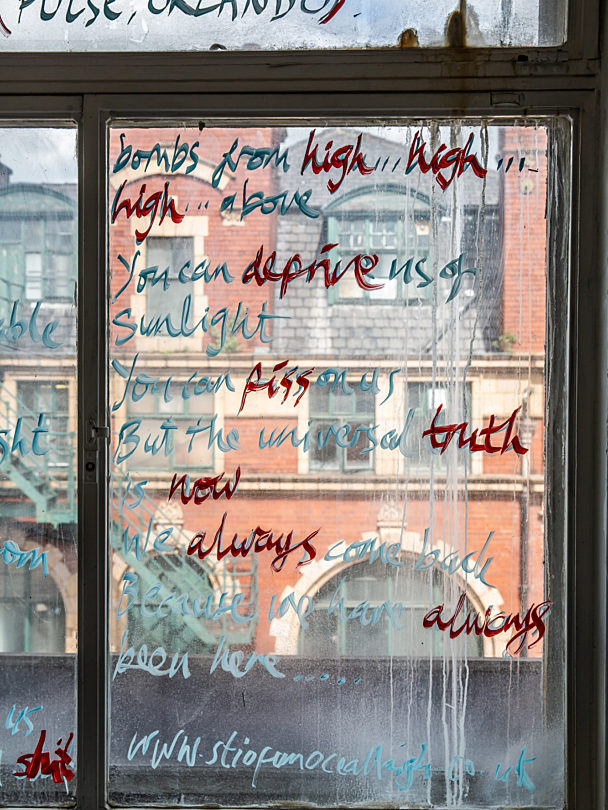 (PULSE, ORLANDO).
bombs from high...high...
high...above
You can deprive us of
Sunlight
You can piss on us
But the universal truth
is now
We always come back
Because we have always
been here.....
ble
ght
om
us
shit